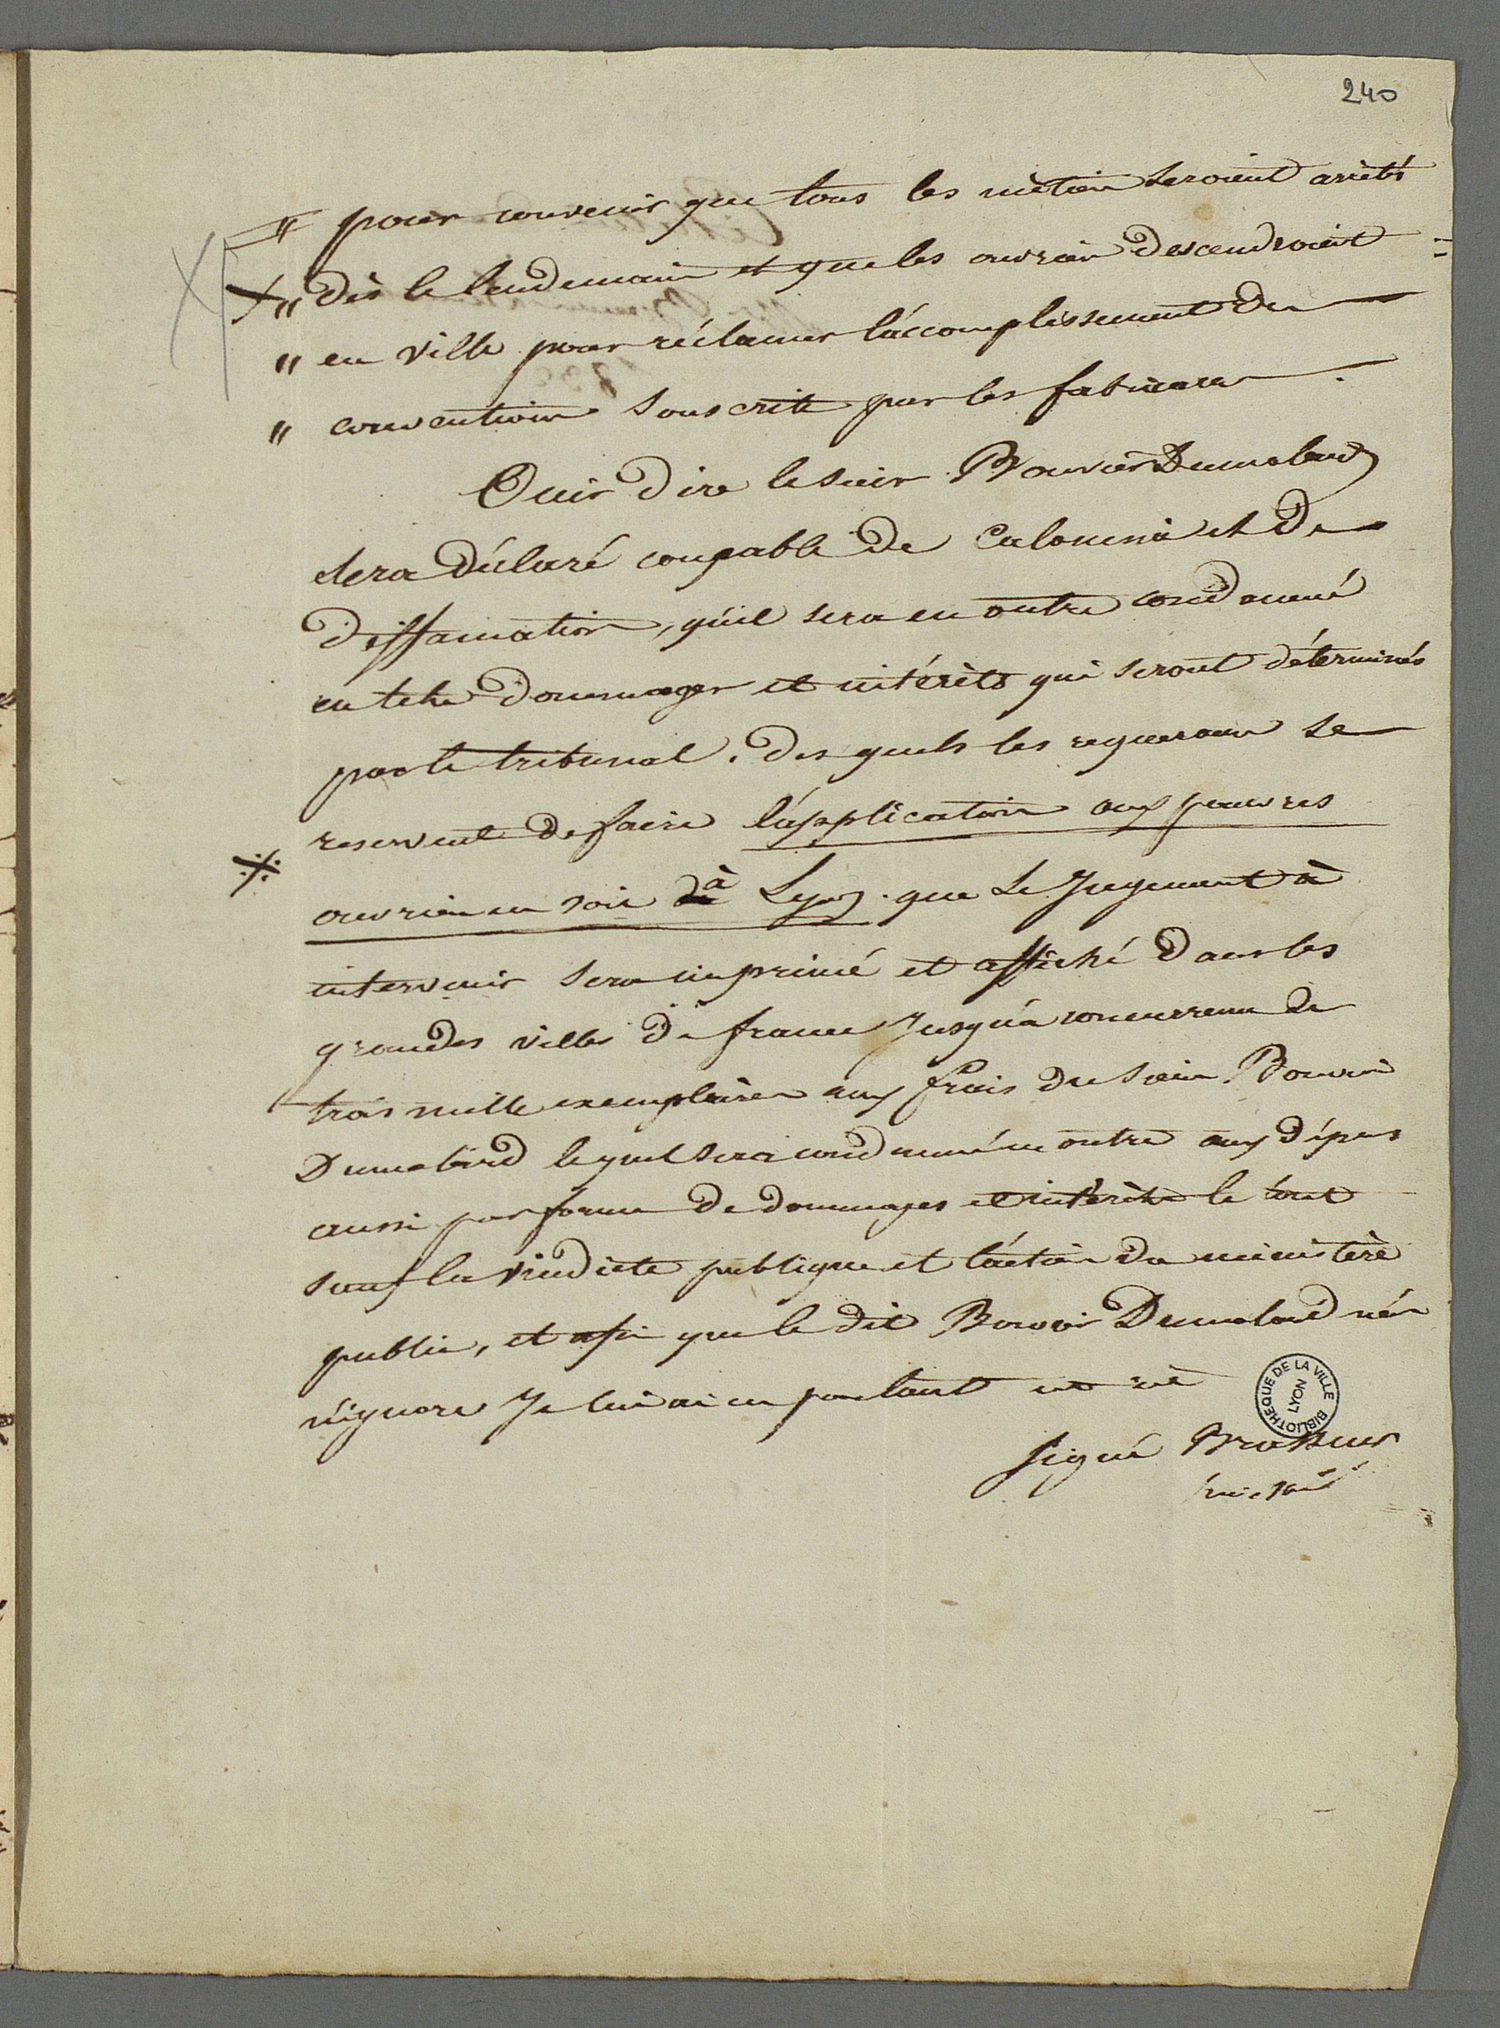 240
" pour convenir que tous les métiers seroient arrêtés
" dès le lendemain et que les ouvriers descendroient
" en ville pour réclamer l'accomplissement des
" conventions souscrites par les fabricans.
Ouir dire le sieur Bouvier Dumolard
sera déclaré coupable de Calomnie et de
diffamation, qu'il sera en outre condamné
en tels dommages et intérêts qui seront déterminés
par le tribunal. des quels les requerans se
reservent de faire l'application aux pauvres
ouvriers en soie de à Lyon. que le Jugement à
intervenir sera imprimé et affiché dans les
grandes villes de france Jusqu'à concurrence de
trois mille exemplaires aux frais du sieur Bouvier
Dumolard lequel sera condamné en outre aux dépens
aussi par forme de dommages et intérêts le tout
sauf la vindicte publique et l'action du ministère
public, et afin que le dit Bouvier Dumolard n'en
n'ignore Je lui ai en parlant
signé
BIBLIOTHEQUE DE LA VILLE LYON